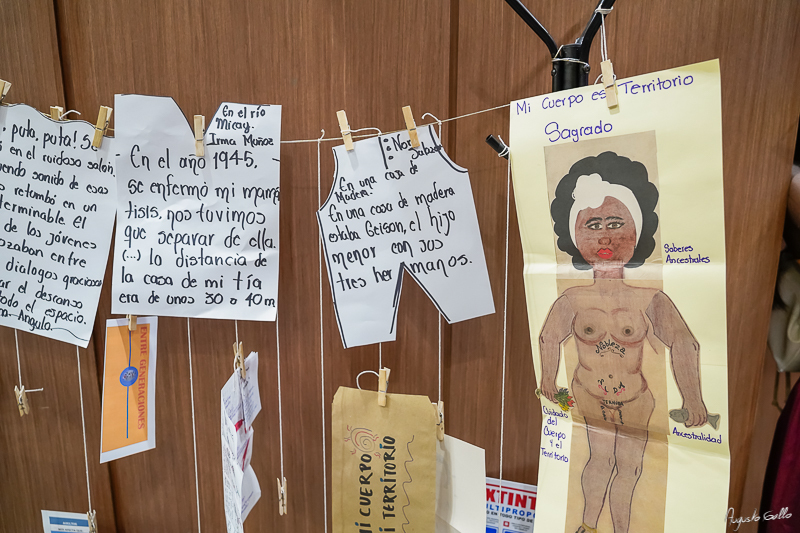 , puta, puta! S
s en el ruidoso salón,
uendo sonido de esas
retumbó en un
terminable el
de los jóvenes
ozaban entre
dialogos graciosos
ar el descanso
todo el espacio.
na- Angulo.
En el río
Micay.
Irma Muñoz
En el año 1945,
se enfermó mi mamá
tisis, nos tuvimos
que separar de ella.
(...) la distancia de
la casa de mi tía
era de unos 30 a 40m
En una casa de
Madera.
En una casa de madera
estaba Geison, el hijo
menor con sus
tres hermanos.
Mi Cuerpo es Territorio
Sagrado
Saberes
Ancestrales
Nobleza
VIDA
Cuidado
del
Cuerpo
y el
Territorio
Ancestralidad
ENTRE GENERACIONES
MI CUERPO
MI TERRITORIO
EXTINT
MULTIPROP
Augusto Gallo